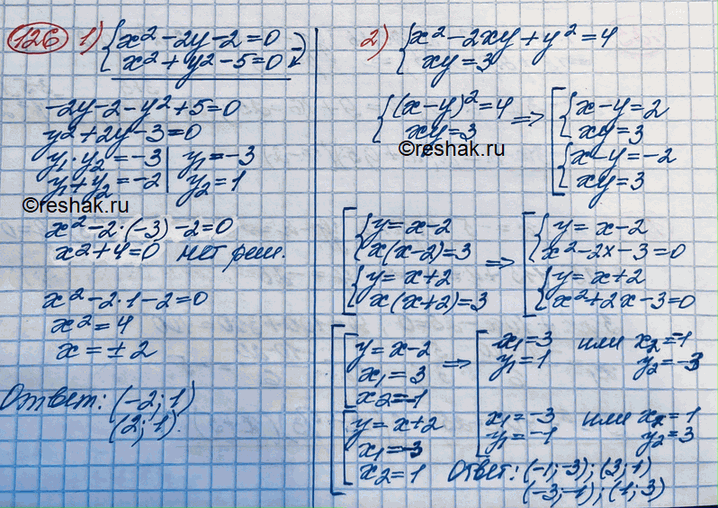 126 1) {x² - 2y - 2 = 0
x² + y² - 5 = 0 -)
-2y - 2 - y² + 5 = 0
y² + 2y - 3 = 0
y₁ · y₂ = -3 | y₁ = -3
y₁ + y₂ = -2 | y₂ = 1
©reshak.ru
x² - 2 · (-3) - 2 = 0
x² + 4 = 0 нет реш.
x² - 2 · 1 - 2 = 0
x² = 4
x = ± 2
Ответ: (-2; 1)
(2; 1).
2) {x² - 2xy + y² = 4
xy = 3
{(x - y)² = 4
xy = 3 => [{x - y = 2
xy = 3
{x - y = -2
xy = 3
©reshak.ru
[{y = x - 2
x(x - 2) = 3
{y = x + 2
x(x + 2) = 3
=> [{y = x - 2
x² - 2x - 3 = 0
{y = x + 2
x² + 2x - 3 = 0
[[y = x - 2
x₁ = 3
x₂ = -1
[y = x + 2
x₁ = -3
x₂ = 1
=> [x₁ = 3 или x₂ = -1
y₁ = 1 y₂ = -3
x₁ = -3 или x₂ = 1
y₁ = -1 y₂ = 3
Ответ: (-1; -3); (3; 1)
(-3; -1); (1; 3)